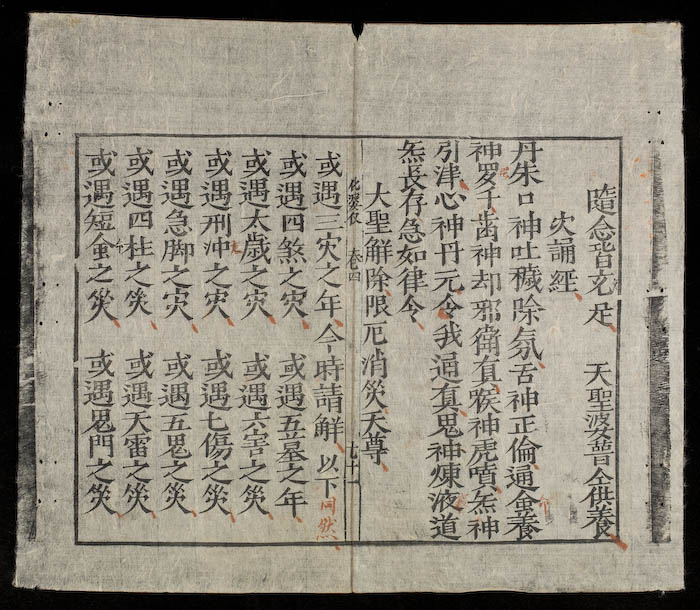 隨念皆充足 天聖普仝供養
次誦經
丹朱口神吐穢除氛舌神正倫通金養
神罗千齒神却邪衛真喉神虎噴炁神
引津心神丹元令我通真鬼神煉液道
炁長存急如律令
大聖解除限厄消災天尊
卷四 七十一
或遇三灾之年今時請解以下同然
或遇四煞之灾 或遇五墓之年
或遇太歲之灾 或遇六害之災
或遇刑沖之灾 或遇七傷之災
或遇急脚之灾 或遇五鬼之災
或遇四柱之災 或遇天雷之災
或遇短金之災 或遇鬼門之災